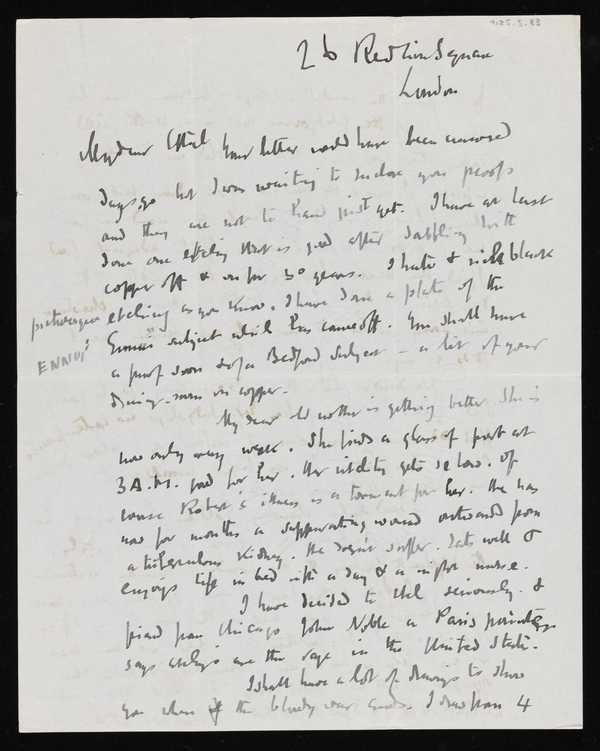 26 Red Lion Square
London
My dear Ethel Your letter would have been answered
days ago but I was waiting to enclose you proofs
and they are not to hand just yet. I have at last
done one etching that is good after dabbling with
copper off & on for 30 years. I hate a rich black
picturesque etching as you know. I have done a plate of the
ENNUI
Ennui subject which has come off. You shall have
a proof soon & of a Bedford subject – a bit of your
dining-room on copper.
My dear old mother is getting better. She is
now only very weak. She finds a glass of port at
3 A.M. good for her. Her vitality gets so low. Of
course Robert's illness is a torment for her. He has
now for months a suppurating wound outward from
a tuberculous kidney. He doesn't suffer. Eats well &
enjoys life in bed with a day & a night nurse.
I have decided to etch seriously. A
friend from Chicago John Noble a Paris painter
says etchings are the rage in the United States.
I shall have a lot of drawings to show
you when if the bloody war ends. I draw from 4